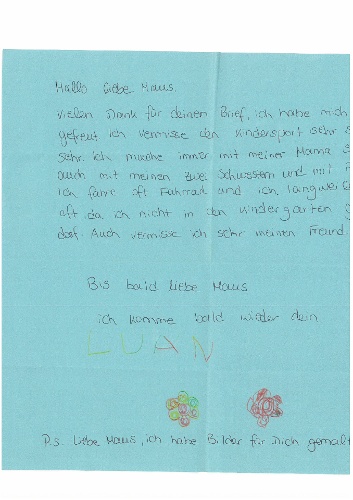 Hallo liebe Maus.
Vielen Dank für deinen Brief, ich habe mich
gefreut ich vermisse den Kindersport sehr
sehr. Ich mache immer mit meiner Mama
auch mit meinen zwei Schwestern und mit
ich fahre oft Fahrrad und ich langwei
oft da ich nicht in den Kindergarten
darf. Auch vermisse ich sehr meinen Freund
Bis bald liebe Maus
ich komme bald wieder dein
LUAN
P.S. liebe Maus, ich habe Bilder für Dich gemalt